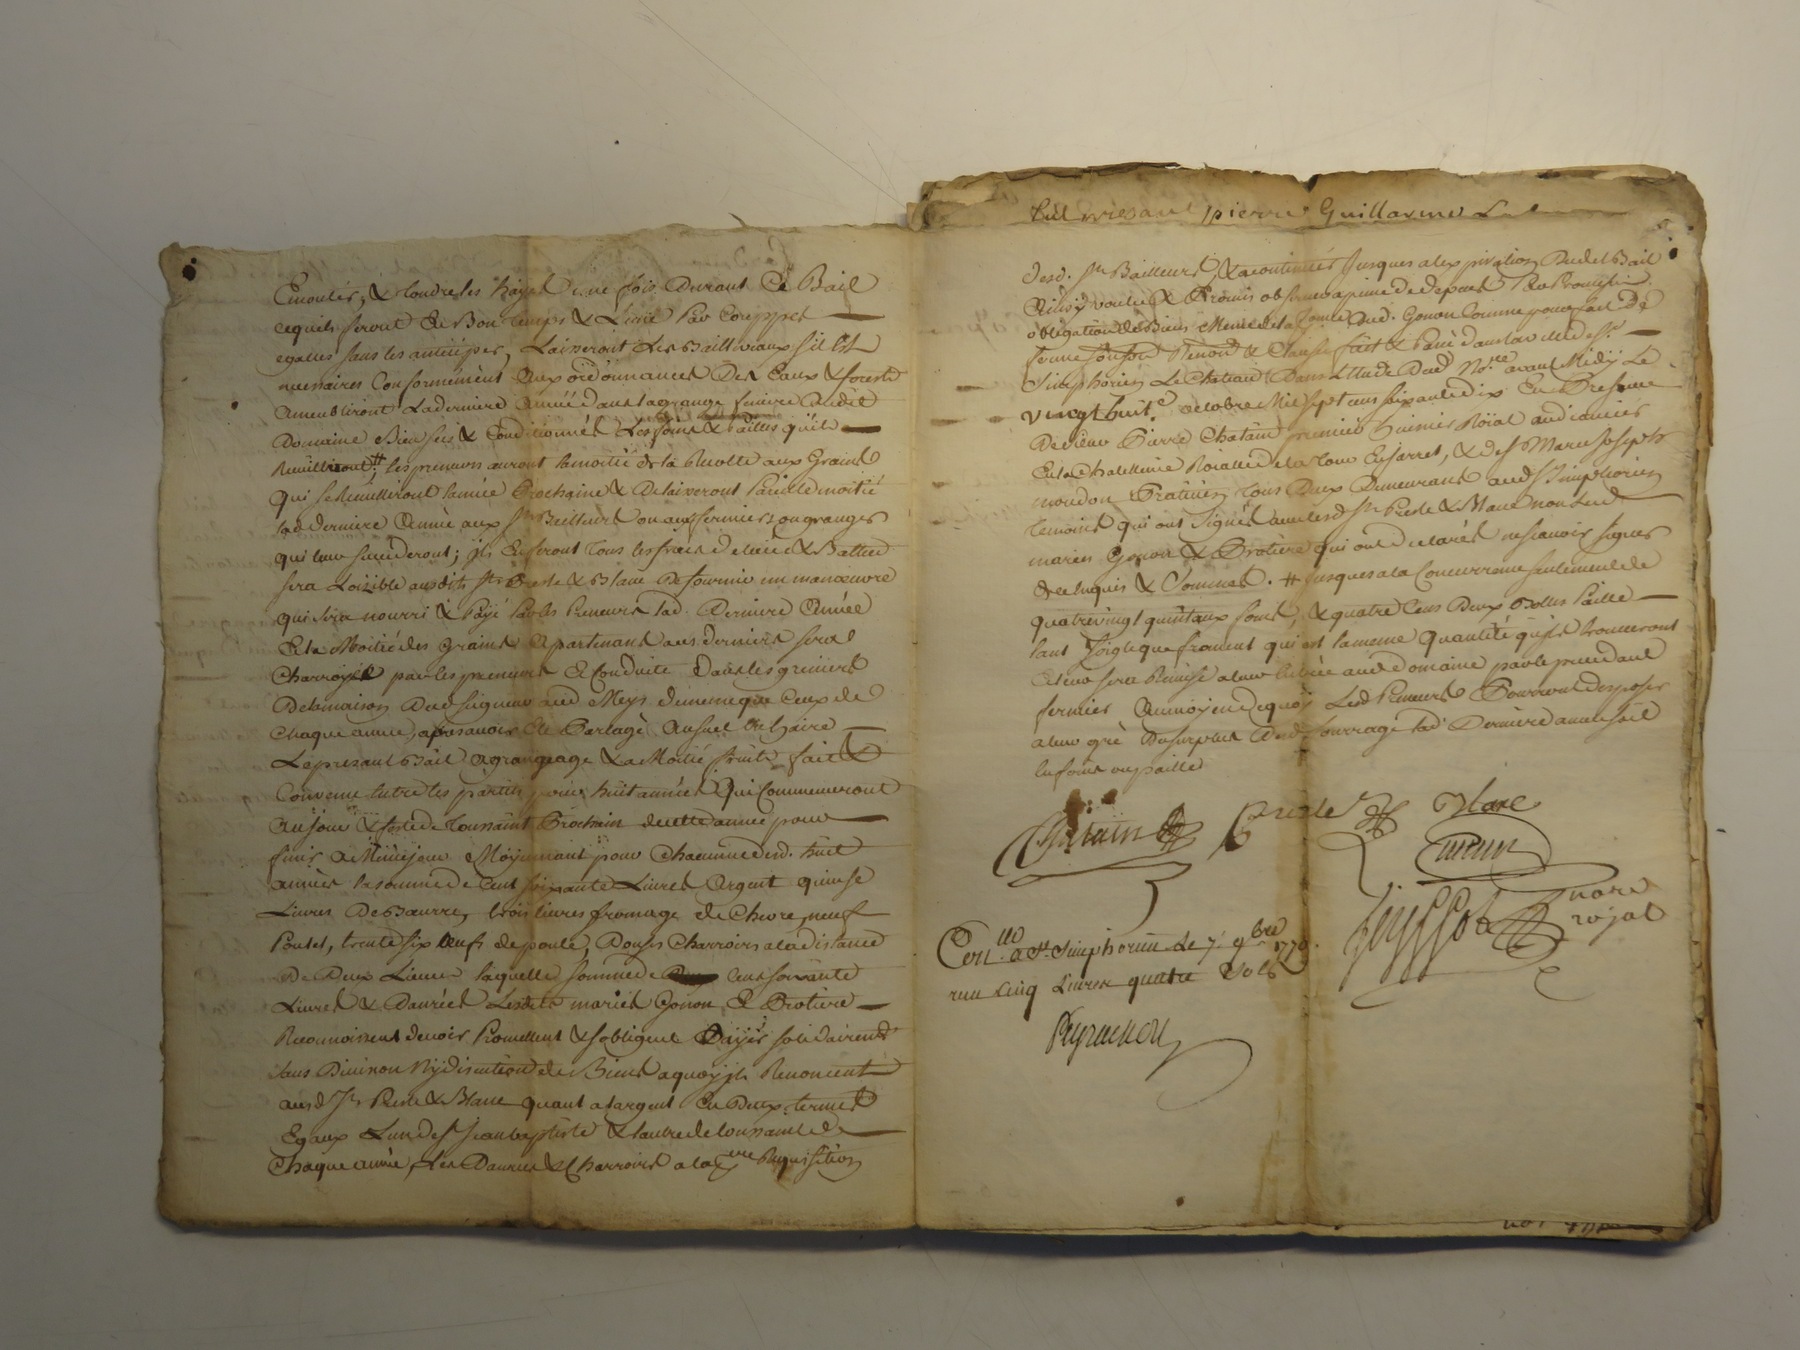 Emoutés, & tondre les hayes une fois Durant Ce Bail
cequils feront En Bon temps & Lune Par Couppes
egalles sans les anticiper, Laisseront Les Baillivaux s'il Est
necessaires Conformement Aux ordonnances Des Eaux & forests
Ameubliront La derniere Année dans la grange feniere Audit
Domaine Bien secs & Conditionnés Les foins & Pailles qu'ils
Reuilliront # les preneurs auront la moitié de la Recolte aux Grains
qui se Reuilliront l'année Prochaine & Delaisseront Pareille moitié
lad derniere Année aux Srs Bailleurs ou aux fermiers ou grangers
qui leur succederont; ils En feront tous les frais & Battre
sera Loisible ausdits Srs Presle & Blanc De fournir un manœuvre
qui sera nourri & Payé Par les Preneurs lad. Derniere Année
Et la Moitié des Grains Apartenant aus derniers sera
Charroyée par les preneurs & Conduite Dans les greniers
De la maison Dud seigneur aud Meys de meme que Ceux de
Chaque année, apres avoir Eté Partagé Au suel
Le present Bail Agrangeage & a Moitié fruits fait &
Convenu Entre les parties pour huit années Qui Commenceront
Au jour & feste de Toussaint Prochain de cette année pour
finir A Mil jour Moyennant pour Chacune desd. huit
années la somme de Cent soixante Livres Argent quinse
Livres De Bœurre, trois livres fromage de Chevre, neuf
Poulet, trente six œufs de poule, Douse Charroirs a la distance
De Deux Lieues laquelle somme de Cent soixante
Livres & Danrées Lesdits mariés Gonon & Protiere
Reconnoissent devoir Promettent & s'obligent Payer solidairement
sans Division Ny discution de Biens a quoy ils Renoncent
ausd Srs Presle & Blanc quant a l'argent En Deux termes
Egaux L'un de St Jean baptiste & l'autre de toussaint de
Chaque année, Les Danrées & Charroirs a la 1ere Requisition
pierre Guillarme
desd. Srs Bailleurs, & a continuer Jusques a l'expiration Dudt Bail
Ainsy voulu & Promis observer a peine de depens Par Promesse
obligation de Biens Meme de la Jointe dud. Gonon Comme pour fait De
ferme Renond & Clauses fait & Passé dans la ville de St
Simphorien Le Chateau Dans L'Etude Dud Nore avant Midy Le
vingt huite octobre Mil sept cens soixante dix En Presence
De sieur Pierre Chatain premier huissier Roïal audiancier
En la Chatellenie Roialle de la Tour En Jarret, & de sr Marc Joseph
moudon Praticien tous Deux Demeurant aud St Simphorien
temoins qui ont Signés avec lesd Srs Presle & Blanc non Lesd
mariés Gonon & Protiere qui ont declarés ne sçavoir signer
de ce Enquis & Sommés. # Jusques a la Concurrence seulement de
quatrevingt quintaux foins, & quatre Cens Deux Bottes Paille
tant soigle que froment qui est la meme Quantité qu'ils trouveront
Et leur sera Remise a leur Entrée aud domaine par le precedant
fermier Aumoyen de quoy Lesd Preneurs Pourront disposer
a leur gré Du surplus Dud. fourrage lad Derniere année soit
En foins ou paille
Chatain Presle Blanc
nore
royal
Conlle a St Simphorien Le 7. 9bre 1770.
reçu cinq Livres quatre Sols